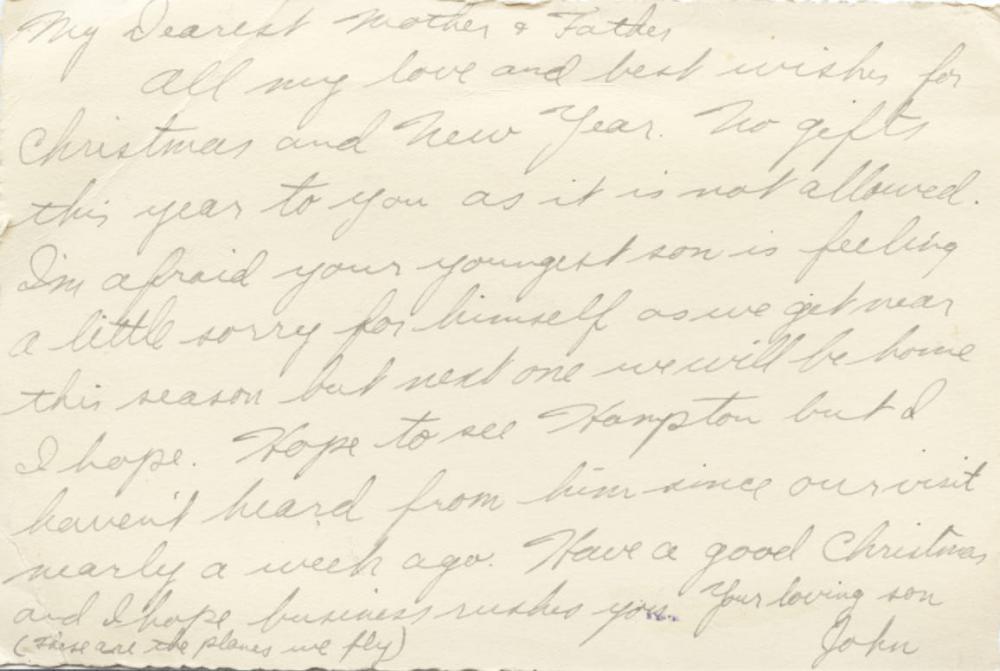 My Dearest Mother & Father
All my love and best wishes for
Christmas and New Year. No gifts
this year to you as it is not allowed.
I'm afraid your youngest son is feeling
a little sorry for himself as we get near
this season but next one we will be home
I hope. Hope to see Hampton but I
haven't heard from him since our visit
nearly a week ago. Have a good Christmas
and I hope business rushes you. Your loving son
John
(These are the planes we fly)